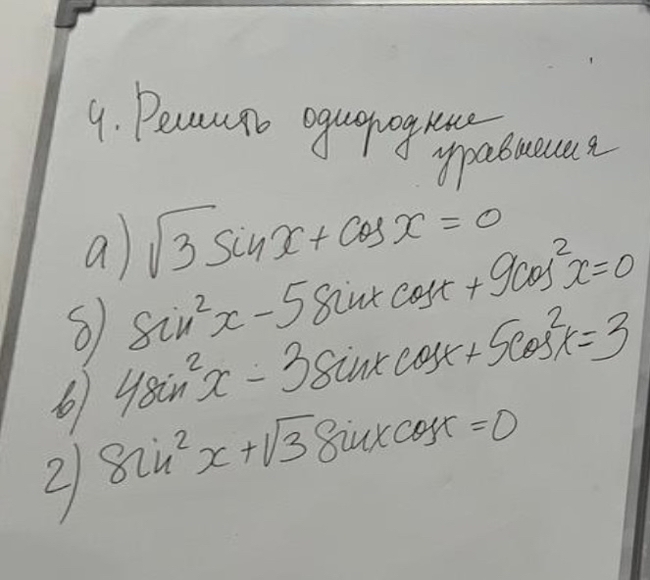 4. Решить однородные
уравнения
а) √3 sinx + cosx = 0
б) sin²x - 5sinx cosx + 9cos²x = 0
в) 4sin²x - 3sinx cosx + 5cos²x = 3
г) sin²x + √3 sinx cosx = 0